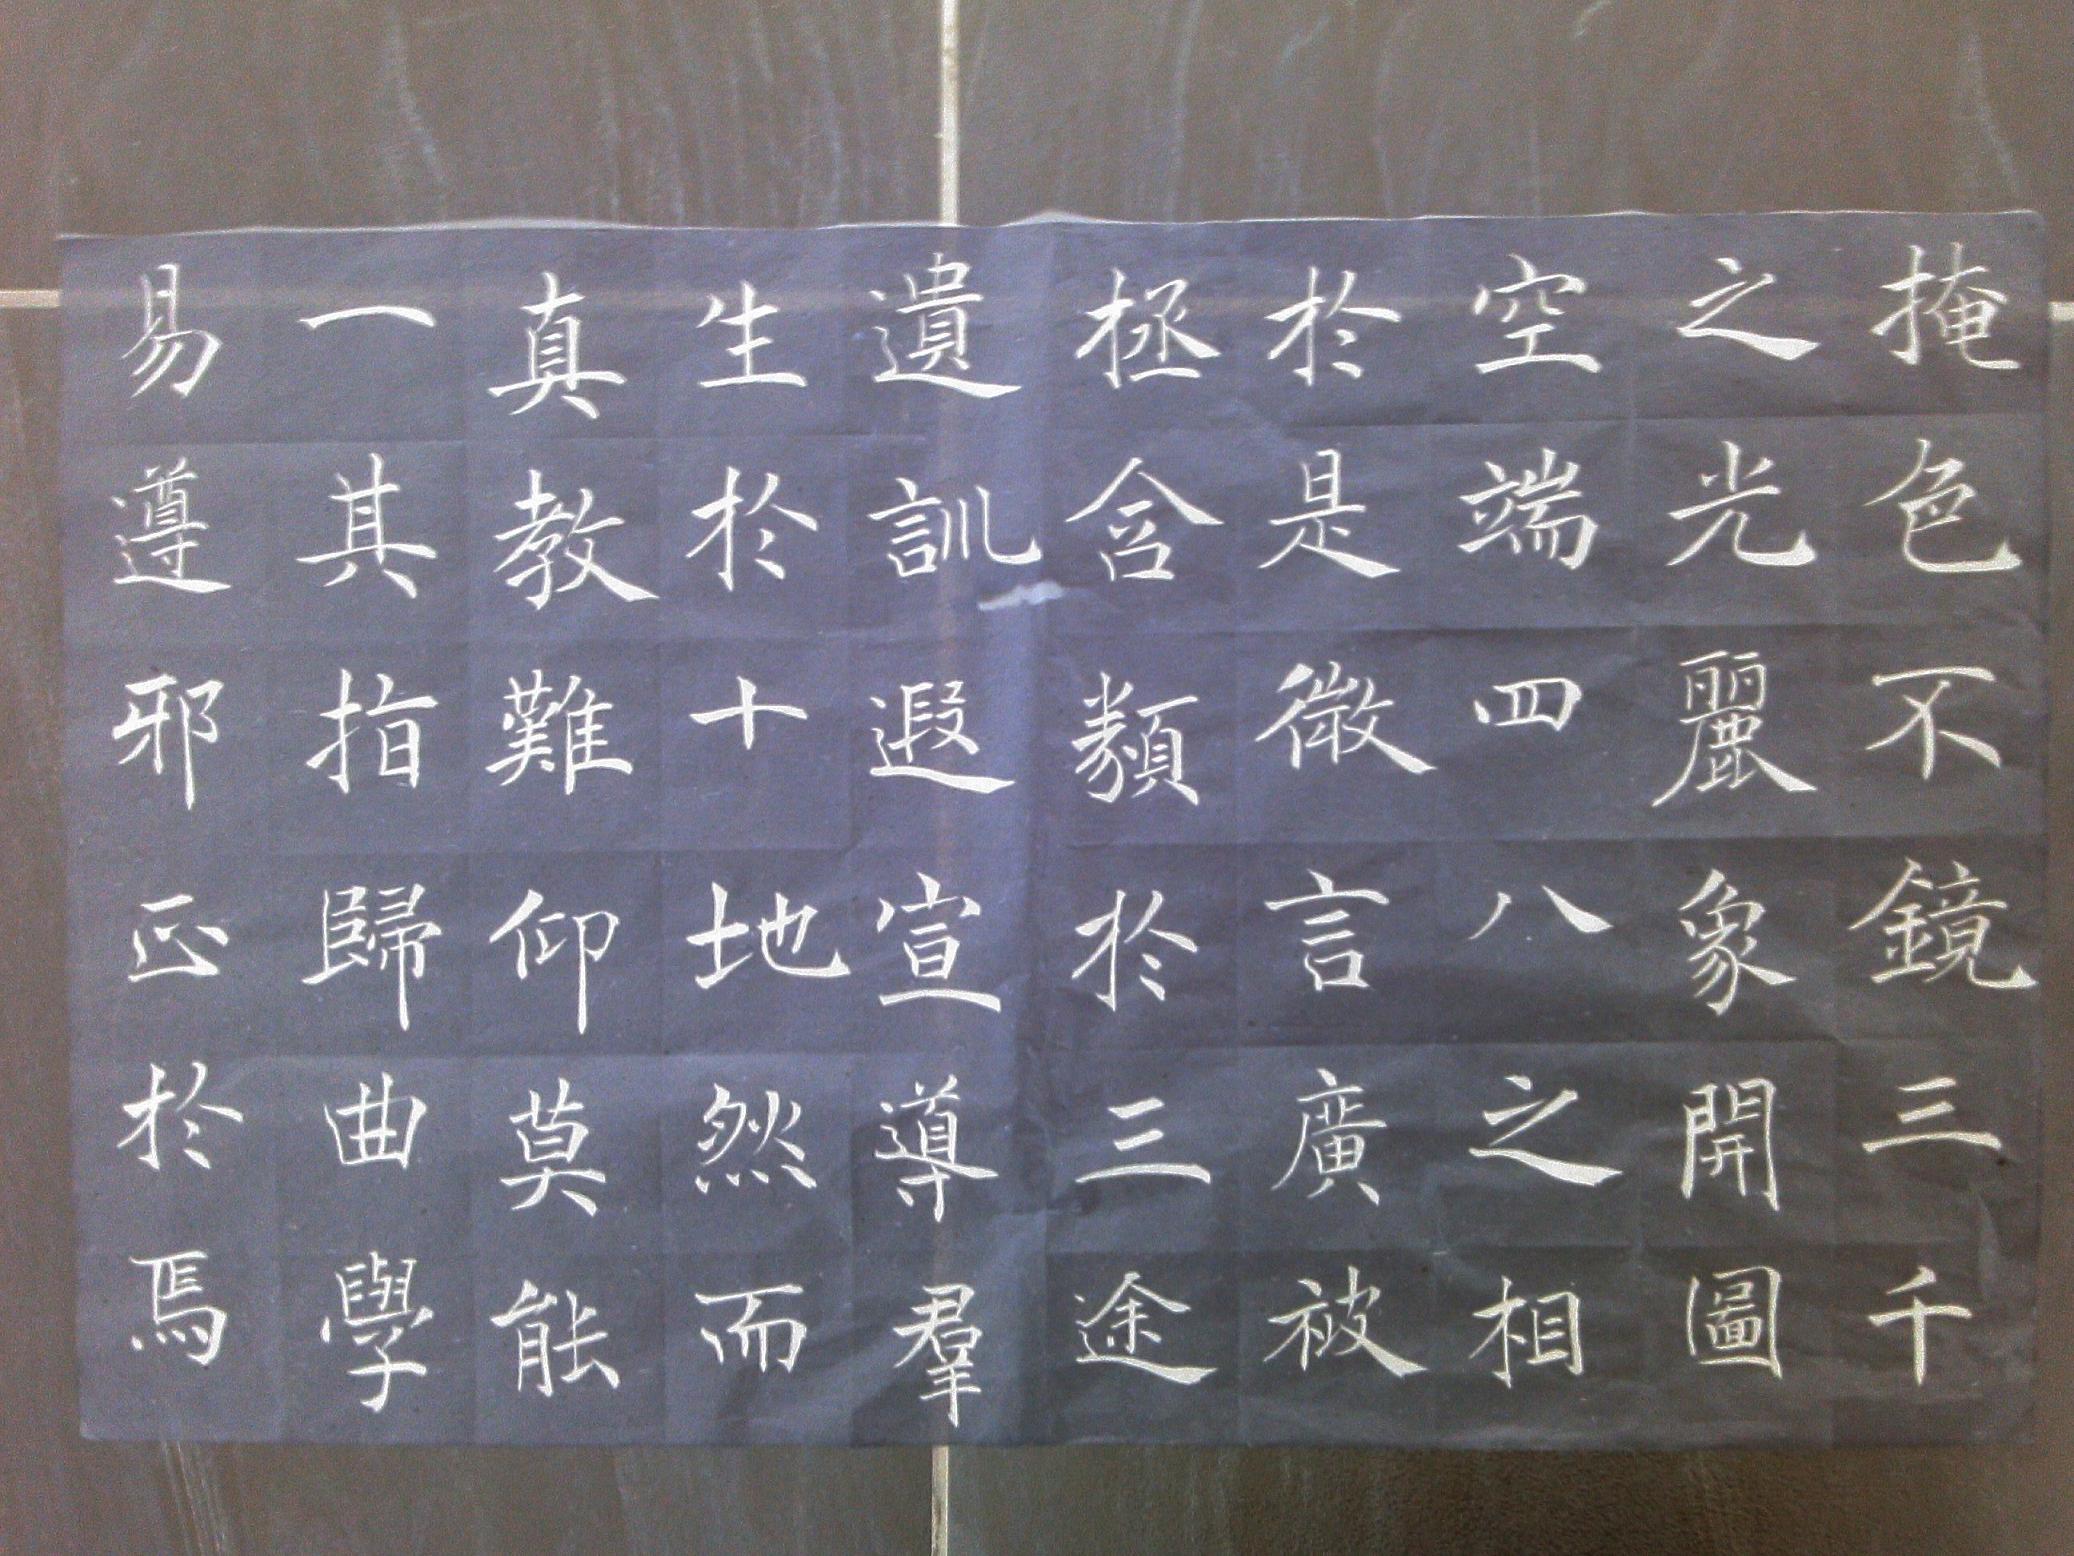 掩色不鏡三千
之光麗象開圖
空端四八之相
於是微言廣被
拯含類於三途
遺訓遐宣導羣
生於十地然而
真教難仰莫能
一其指歸曲學
易遵邪正於焉